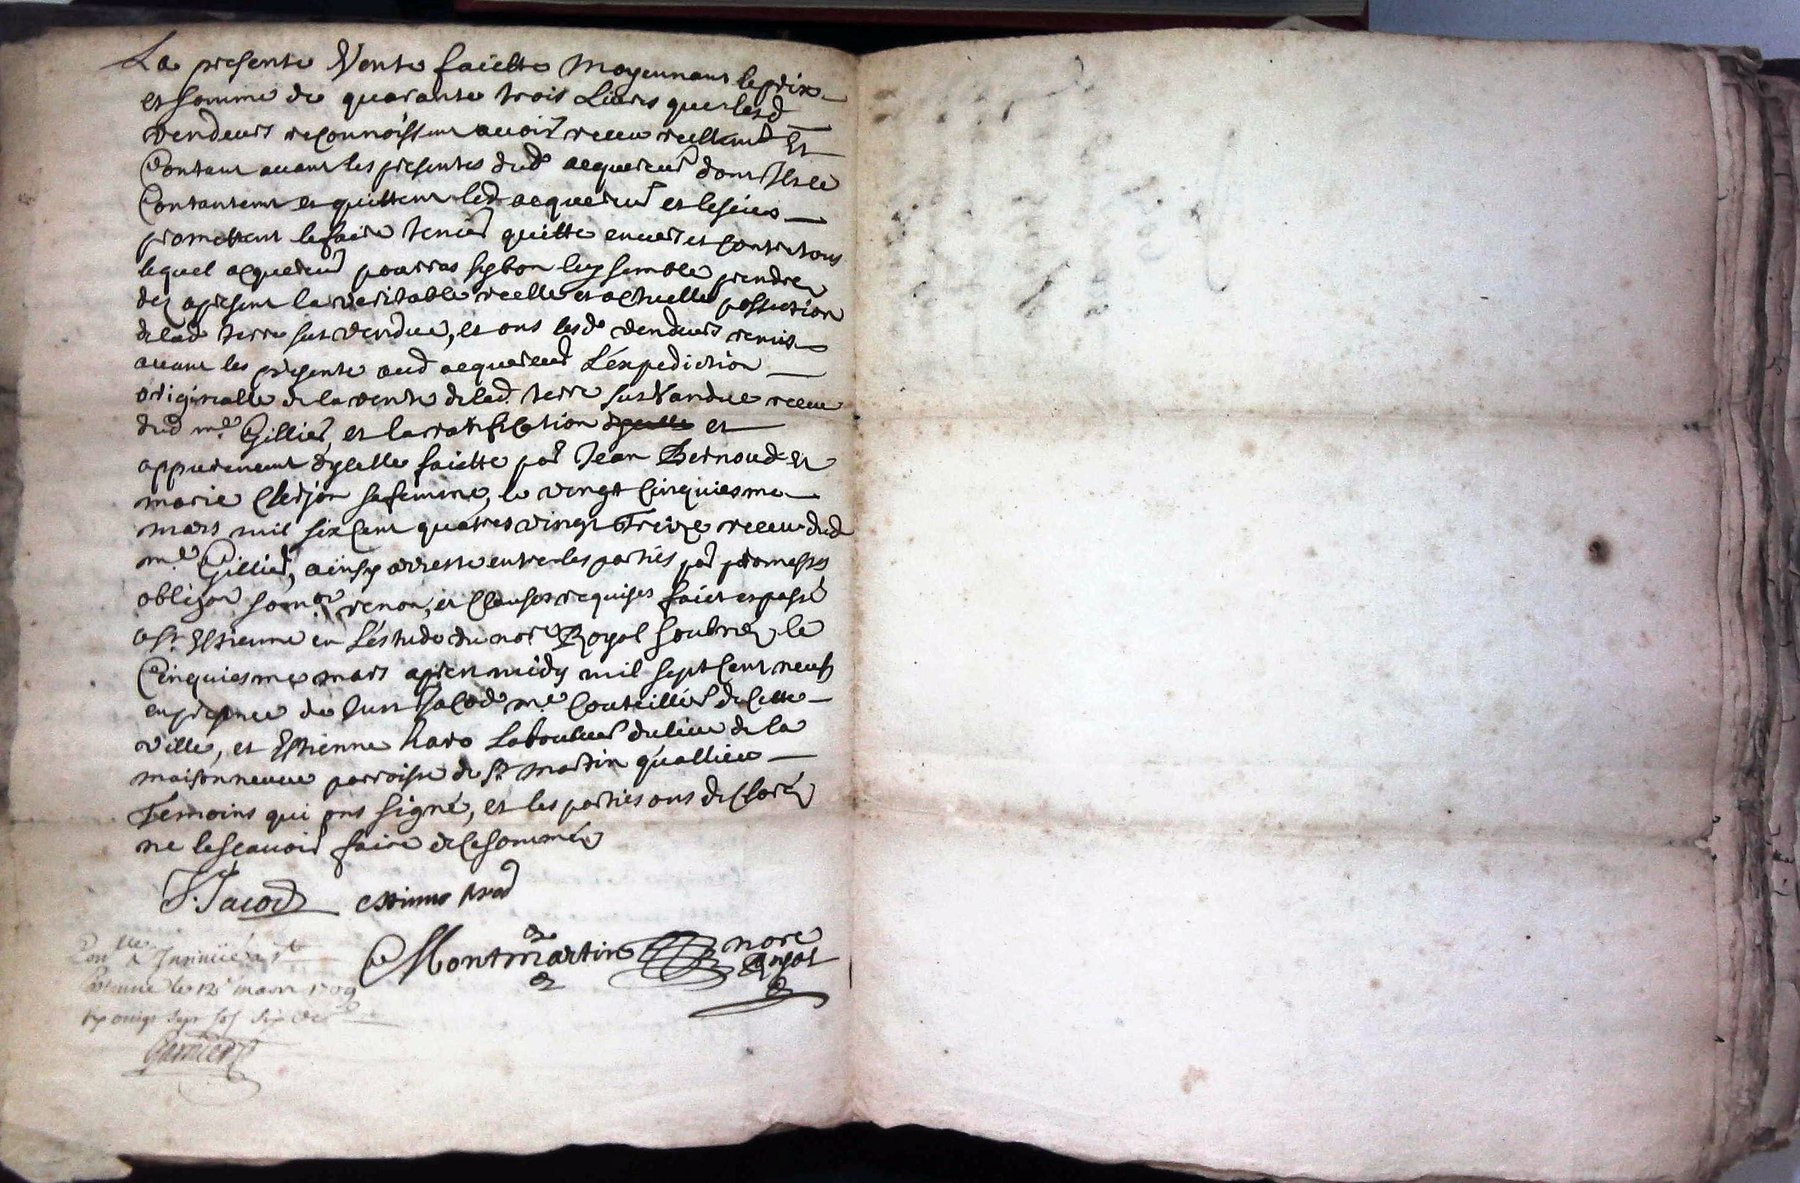 La presente Vente faictte Moyennant le prix
et somme de quarante trois Livres que lesd
vendeurs reconnoissent avoir receu reellemt Et
Contant avant les presentes dud acquereur dont Ils le
Contantent et quittent led acquereur et les siens
promettent le faire tenir quitte envers et contre tous
lequel acquereur pourras sy bon luy semble prendre
dez apresent la veritable reelle et actuelle possession
de lad terre sus vendue, et ont lesd vendeurs remis
avant les presente aud acquereur L'expediction
originalle de la vente de lad. terre sus Vandue receue
dud me Gillier, et la ratiffication et
appurement dycelle faictte par Jean Bernoud Et
marie Clerjon sa femme, le vingt Cinquiesme
mars mil six Cent quatres vingt Treize receue dud
me Gillier, ainsy arresté entre les parties par promesses
obligaon renon, et Clauses requises faict et passé
a St Estienne en L'estude du nore Royal soubné le
Cinquiesme mars apres midy mil sept Cent neuf
en presence de Jacod me Coutellier de Cette
ville, et Estienne haro Laboureur du lieu de la
maison neuve parroisse de St martin
Temoins qui ont signé, et les parties ont declaré
ne le sçavoir faire de ce sommé
J. Jacod estienne
Montmartin nore
Royal
Conlle &
Estienne le 12 mars 1709
sept sols six
Garnier